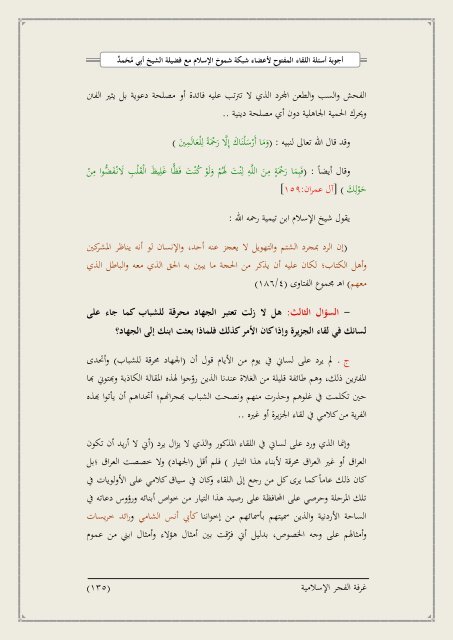 أجوبة أسئلة اللقاء المفتوح لأعضاء شبكة شموخ الإسلام مع فضيلة الشيخ أبي مُحَمدٌ
الفحش والسب والطعن المجرد الذي لا تترتب عليه فائدة أو مصلحة دعوية بل يثير الفتن
ويحرك الحمية الجاهلية دون أي مصلحة دينية ..
وقد قال الله تعالى لنبيه : (وَمَا أَرْسَلْنَاكَ إِلَّا رَحْمَةً لِلْعَالَمِينَ )
وقال أيضاً : (فَبِمَا رَحْمَةٍ مِنَ اللَّهِ لِنْتَ لَهُمْ وَلَوْ كُنْتَ فَظًّا غَلِيظَ الْقَلْبِ لَانْفَضُّوا مِنْ
حَوْلِكَ ) [آل عمران:١٥٩]
يقول شيخ الإسلام ابن تيمية رحمه الله :
(إن الرد بمجرد الشتم والتهويل لا يعجز عنه أحد، والإنسان لو أنه يناظر المشركين
وأهل الكتاب؛ لكان عليه أن يذكر من الحجة ما يبين به الحق الذي معه والباطل الذي
معهم) اهـ مجموع الفتاوى (١٨٦/٤)
– السؤال الثالث: هل لا زلت تعتبر الجهاد محرقة للشباب كما جاء على
لسانك في لقاء الجزيرة وإذا كان الأمر كذلك فلماذا بعثت ابنك إلى الجهاد؟
ج . لم يرد على لساني في يوم من الأيام قول أن (الجهاد محرقة للشباب) وأتحدى
المفترين ذلك، وهم طائفة قليلة من الغلاة عندنا الذين روّجوا لهذه المقالة الكاذبة وبهتوني بها
حين تكلمت في غلوهم وحذرت منهم ونصحت الشباب بهجرانهم؛ أتحداهم أن يأتوا بهذه
الفرية من كلامي في لقاء الجزيرة أو غيره ..
وإنما الذي ورد على لساني في اللقاء المذكور والذي لا يزال يرد (أني لا أريد أن تكون
العراق أو غير العراق محرقة لأبناء هذا التيار ) فلم أقل (الجهاد) ولا خصصت العراق ؛بل
كان ذلك عاماً كما يرى كل من رجع إلى اللقاء وكان في سياق كلامي على الأولويات في
تلك المرحلة وحرصي على المحافظة على رصيد هذا التيار من خواص أبنائه ورؤوس دعاته في
الساحة الأردنية والذين سميتهم بأسمائهم من إخواننا كأبي أنس الشامي ورائد خريسات
وأمثالهم على وجه الخصوص، بدليل أني فرّقت بين أمثال هؤلاء وأمثال ابني من عموم
غرفة الفجر الإسلامية (١٣٥)